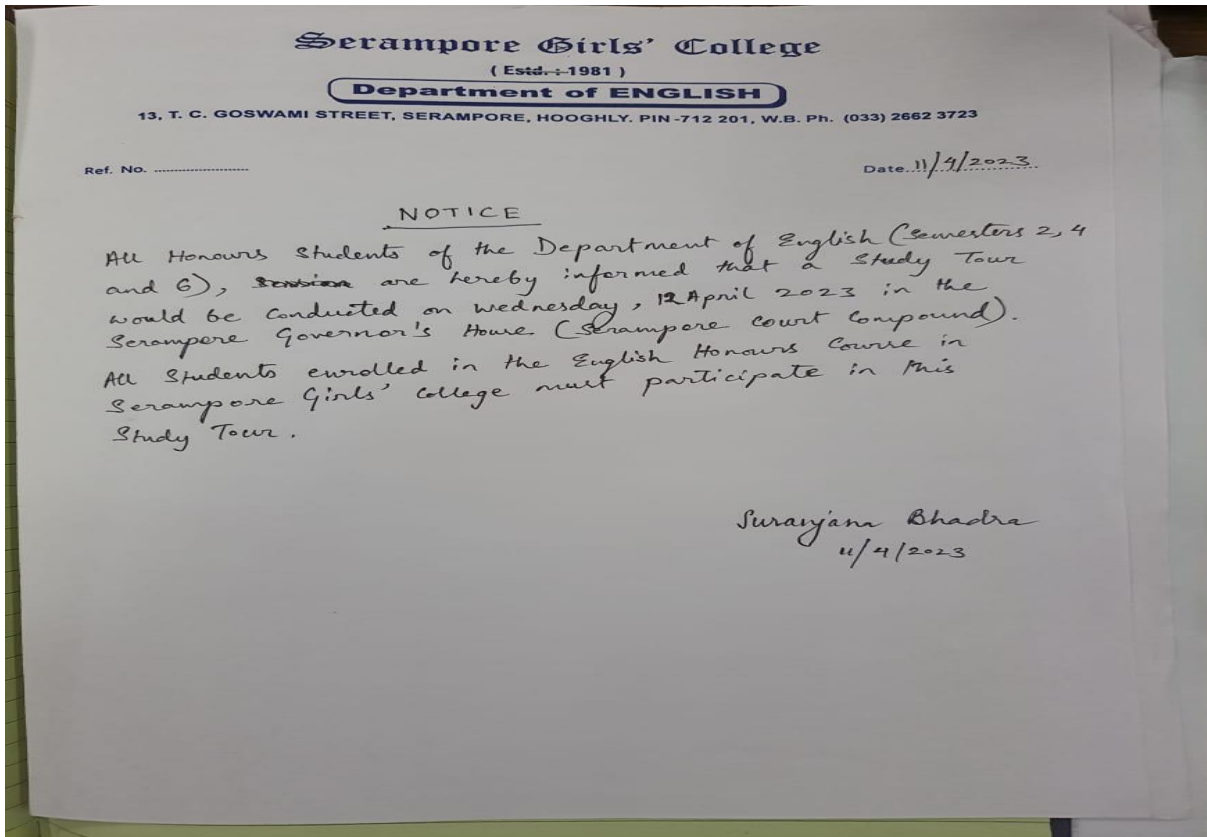 Serampore Girls' College
( Estd. : 1981 )
Department of ENGLISH
13, T. C. GOSWAMI STREET, SERAMPORE, HOOGHLY. PIN -712 201, W.B. Ph. (033) 2662 3723
Ref. No. ........................ Date 11/4/2023
NOTICE
All Honours Students of the Department of English (Semesters 2, 4
and 6), are hereby informed that a Study Tour
would be conducted on Wednesday, 12 April 2023 in the
Serampore Governor's House (Serampore Court Compound).
All Students enrolled in the English Honours Course in
Serampore Girls' College must participate in this
Study Tour.
Suranjana Bhadra
11/4/2023